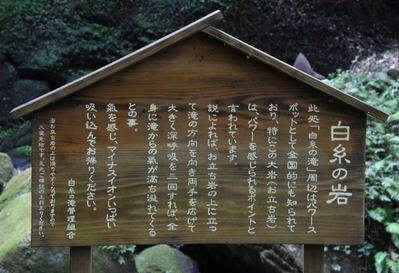 白糸の岩
此処、白糸の滝一周辺はパワース
ポットとして全国的にも知られて
おり、特にこの大岩（お立ち岩）
は、パワーを感じられるポイントと
言われています。
説によれば、お立ち岩の上に立っ
て滝の方向を向き両手を広げて
大きく深呼吸を三回すれば、全
身に滝からの氣が満ち溢れてくる
との事。
氣を感じ、マイナスイオンいっぱい
吸い込んでお帰りください。
白糸の滝管理組合
※お立ち岩の上は滑りやすくなっておりますので